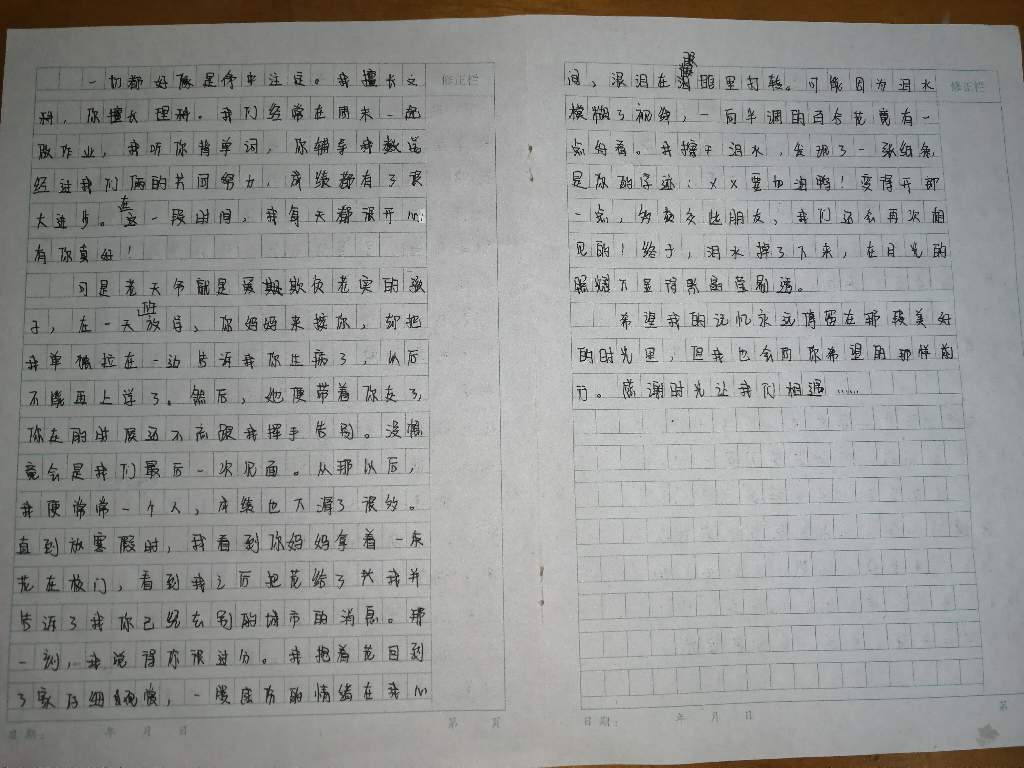 一切都好像是命中注定。我擅长文
修正栏
科，你擅长理科。我们经常在周末一起
做作业，我听你背单词，你辅导我数学
经过我们俩的共同努力，成绩都有了很
大进步。在这一段时间，我每天都很开心：
有你真好！
可是老天爷就是爱欺负老实的孩
子，在一天放学，你妈妈来接你，却把
班
我单独拉在一边告诉我你生病了，以后
不能再上学了。然后，她便带着你走了，
你走的时候还不忘跟我挥手告别。没想
竟会是我们最后一次见面。从那以后，
我便常常一个人，成绩也下滑了很多。
直到放寒假时，我看到你妈妈拿着一束
花在校门，看到我之后把花给了我并
告诉了我你已经去别的城市的消息。那
一刻，我觉得你很过分。我抱着花回到
了家仔细观赏，一度压抑的情绪在我心
日期： 年 月 日
第 页
间，泪在眼眶里打转。可能因为泪水
修正栏
模糊了视线，一向单调的百合花竟有一
点好看。我擦干泪水，发现了一张纸条
是你的字迹：XX要加油鸭！变得开朗
一点，多交些朋友，我们还会再次相
见的！终于，泪水掉了下来，在日光的
照耀下显得晶莹剔透。
希望我的记忆永远停留在那段美好
的时光里，但我也会向你希望的那样前
行。感谢时光让我们相遇……
日期： 年 月 日
第